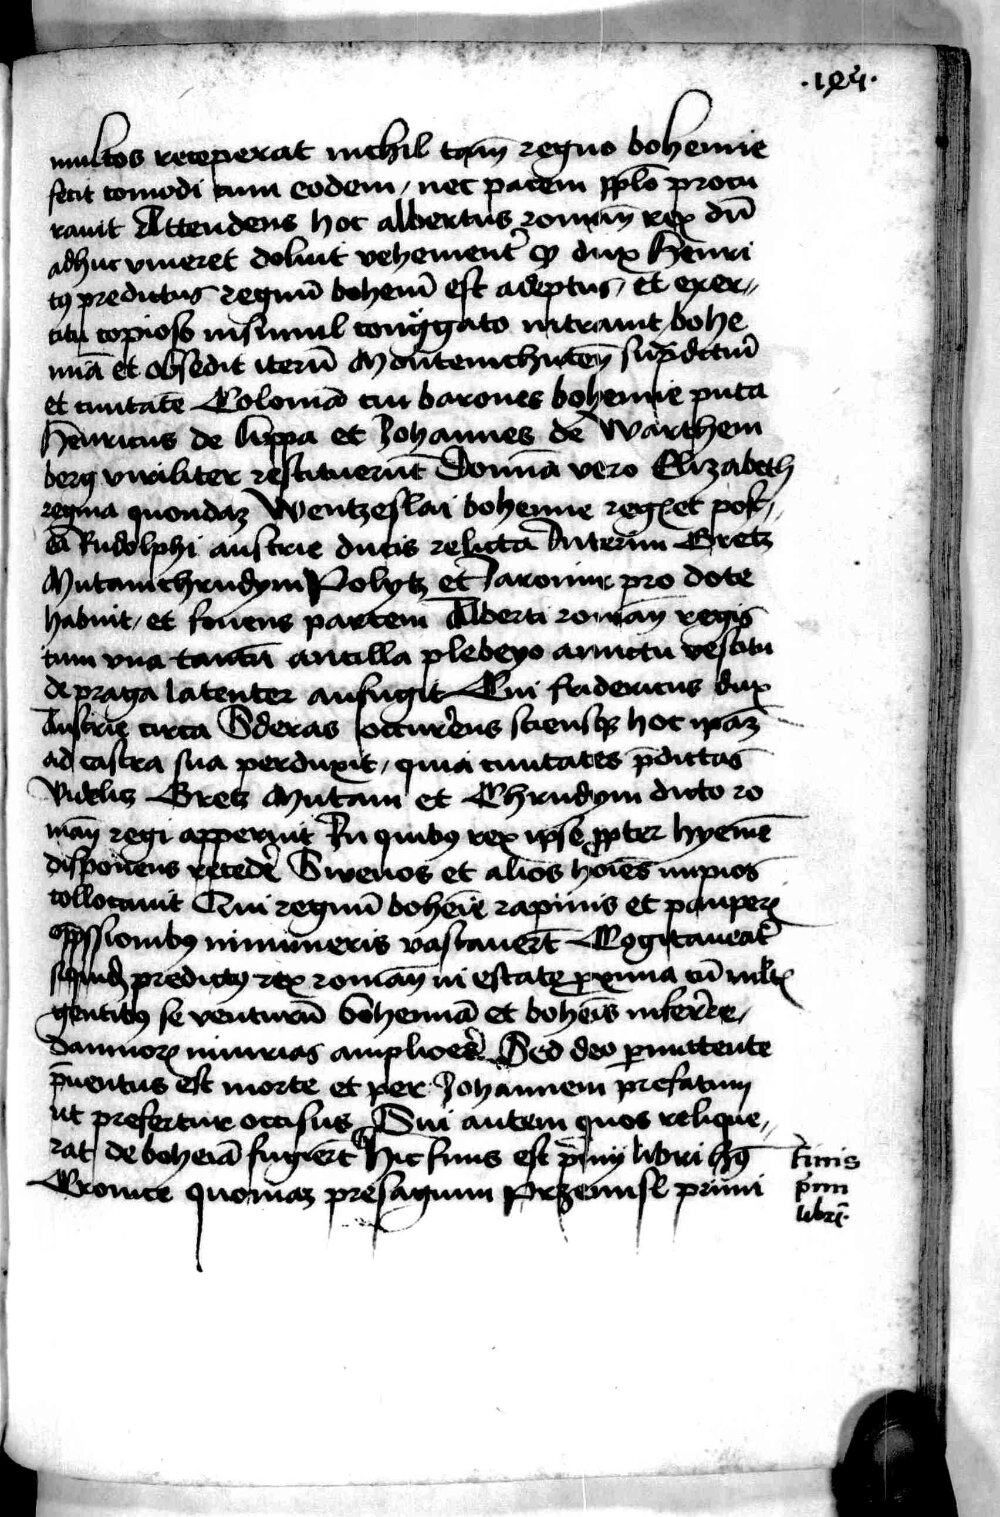 ·195·
multos receperat nichil tam̄ regno bohemie
fecit comodi cum eodem / nec pacem pp̄lo procu
rauit Attendens hoc albertus roman̄ rex dū
adhuc viueret doluit vehement̄ qꝫ dux Henri
cꝰ predictus regnū bohem̄ est adeptus / et exer⸗
citu copioso insimul cong̃gato intrauit bohe
miā et obsedit iterū Montemchuten̄ sup̄dictū
et ciuitatē Coloniā cui barones bohemie puta
Henricus de lippa et Johannes de Warthem
berg viriliter restiterūt Domīa vero Elizabeth
regina quondaꝫ Wentzeslai bohemie reg̃ et post⸗
ea Rudolphi austrie ducis relicta Interim Gretz
Mutam chrudym Polytz et Jaromir pro dote
habuit / et fouens partem Alberti roman̄ regis
cum vna tantū ancilla plebeyo amictu vestitu
de praga latenter aufugit Cui fridericus dux
Austrie circa Sderas occurēns sciensqꝫ hoc ipaꝫ
ad castra sua perduxit / quia ciuitates p̄dictas
videlꝫ Gretz Mutam et Chrudym dicto ro
man̄ regi apperuit In quibꝰ rex ipse pp̄ter hyemē
disponens recedẽ Sweuos et alios hoīes impios
collocauit Qui regnū bohemīe rapinis et pauperꝝ
opp̄ssionibꝰ innumeris vastauerūt Cogitauerat̄
siquidē predictꝰ rex roman̄ in estate ꝓxima cū mltꝭ
gentibꝰ se venturū bohemiā et bohemīs inferrẽ /
damnorꝝ iniurias ampliores Sed deo ꝑmittente
p̄uentus est morte et per Johannem prefatum
ut prefertur occisus Sui autem quos relique⸗
rat de bohemiā fugierūt Hic finis est p̄mi libri hꝰ
Cronice quoniaꝫ presagium Przemisl primi
finis
p̄mi
libri·